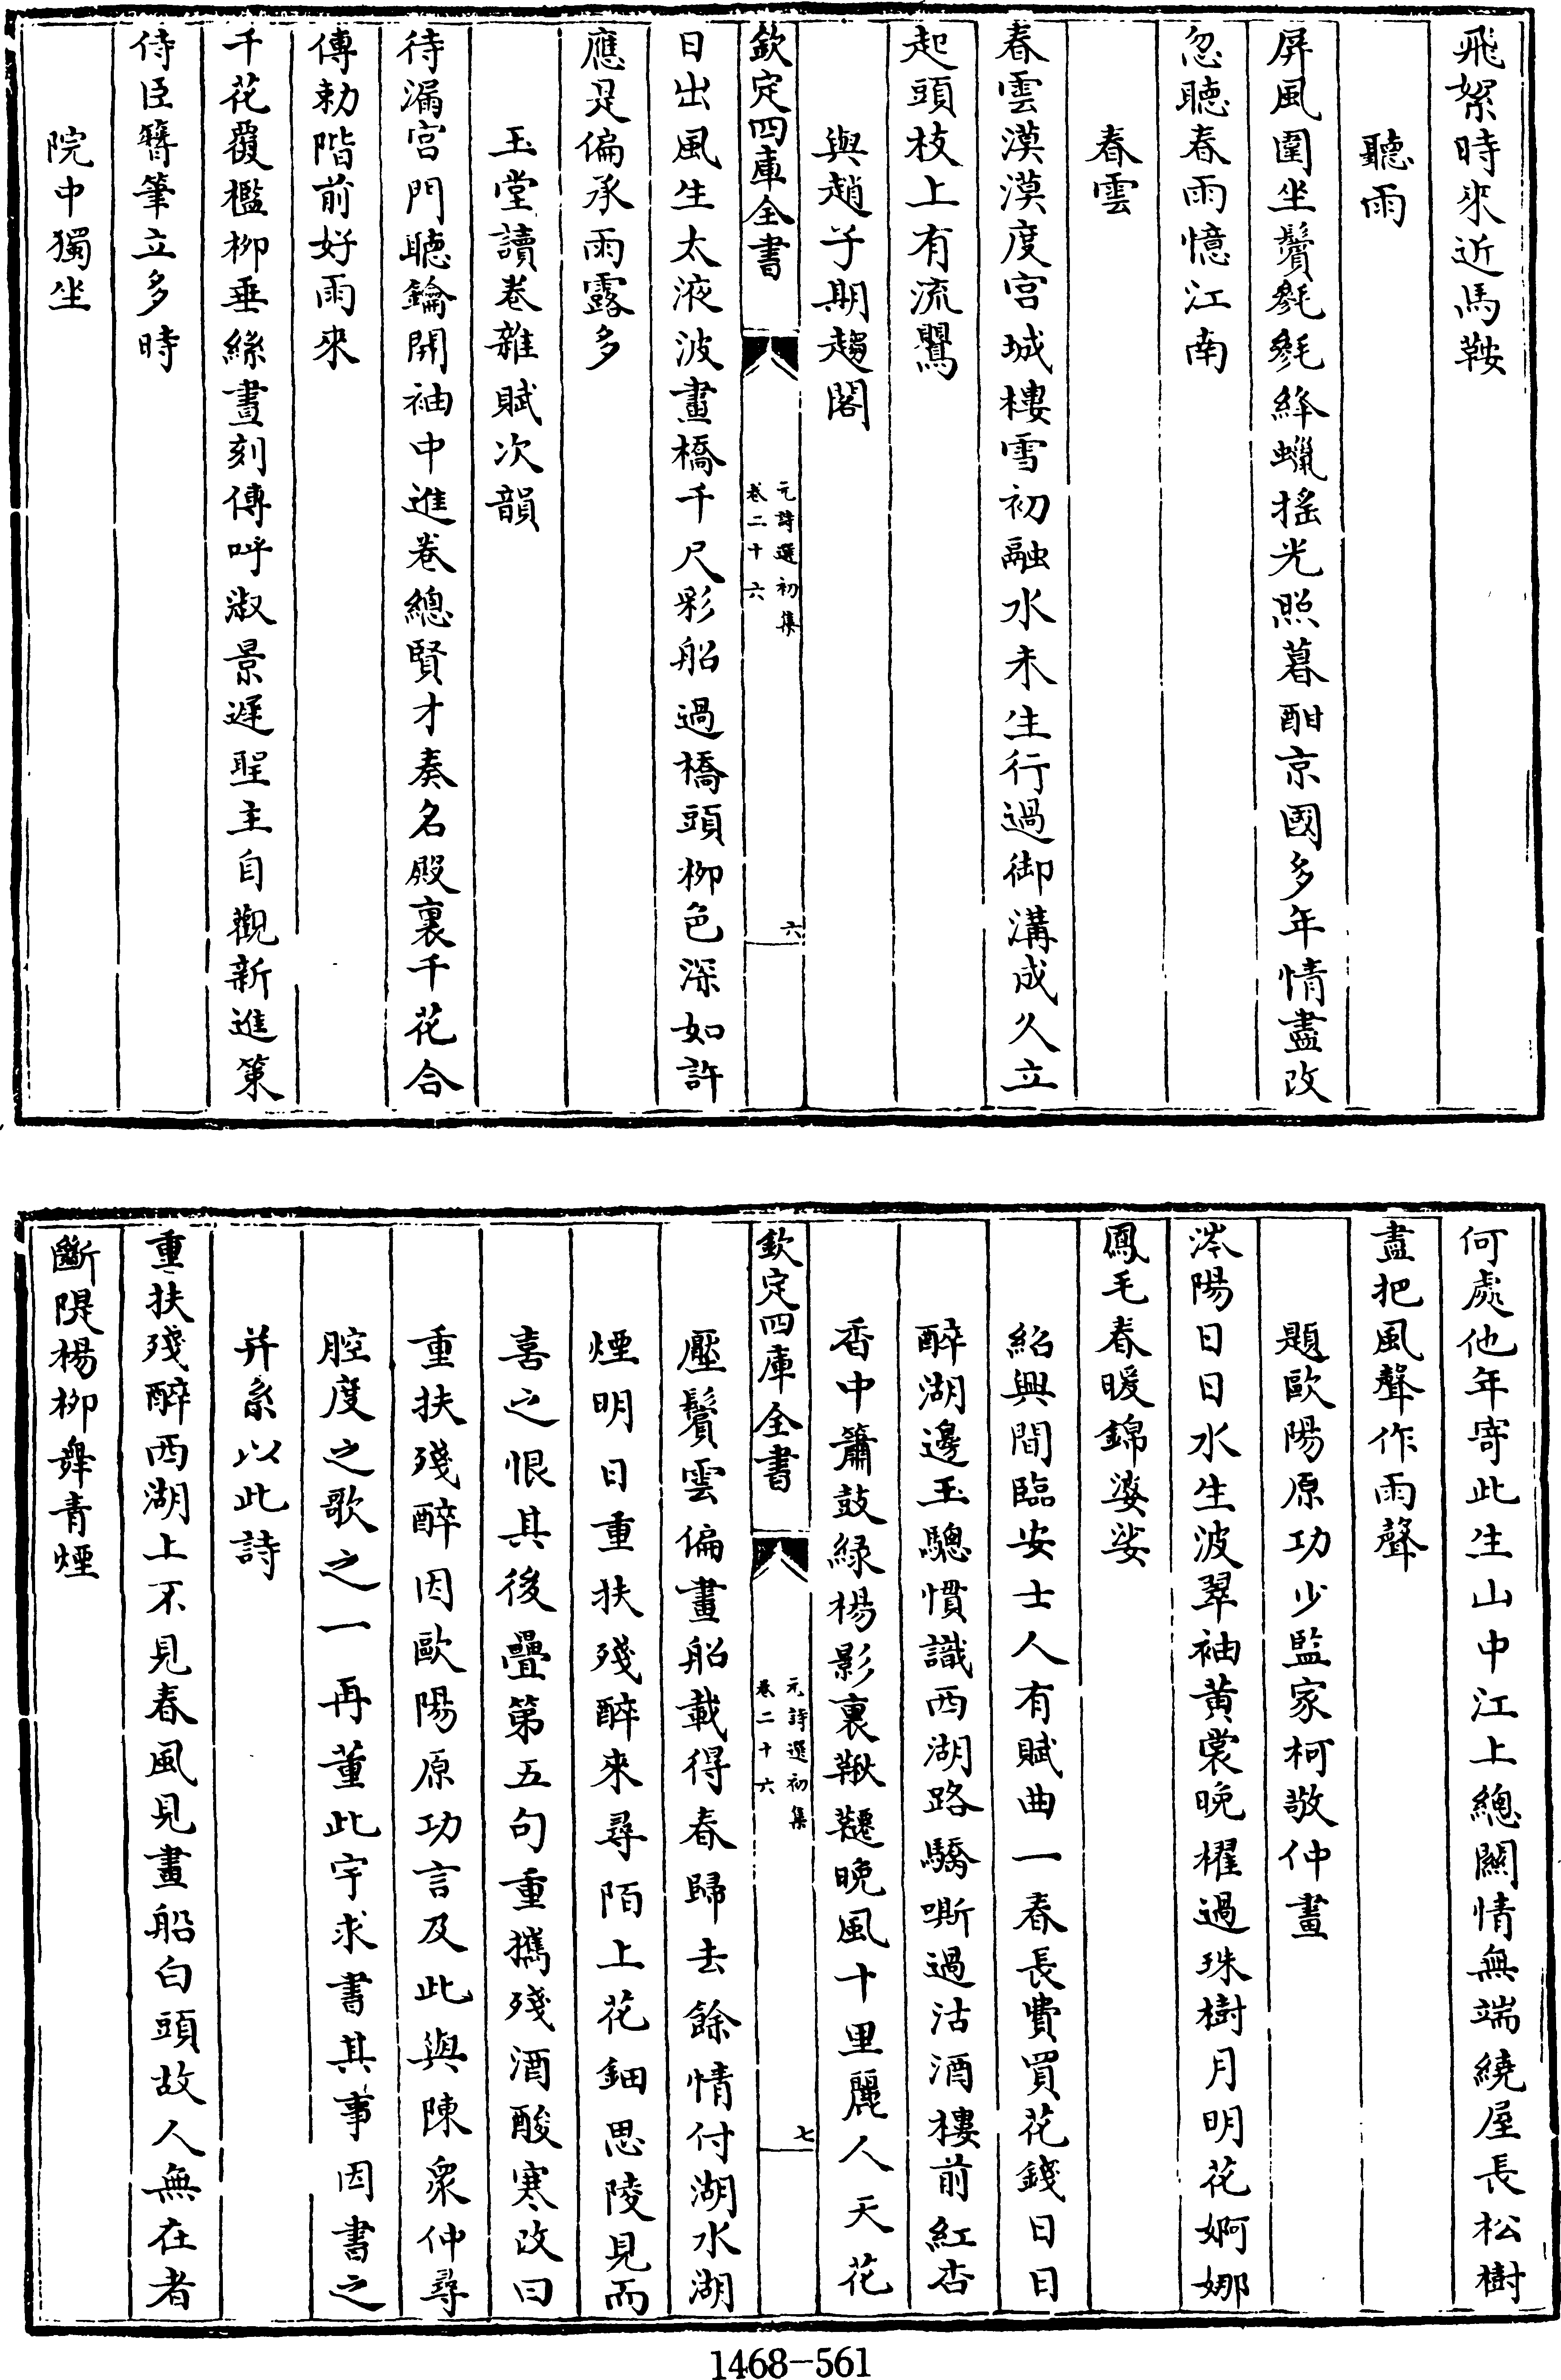 飛絮時來近馬鞍
聽雨
屏風圍坐鬢毿毿絳蠟搖光照暮酣京國多年情盡改
忽聽春雨憶江南
春雲
春雲漠漠度宫城樓雪初融水未生行過御溝成久立
起頭枝上有流鸎
與趙子期趨閣
欽定四庫全書
元詩選初集
卷二十六
六
日出風生太液波畫橋千尺彩船過橋頭柳色深如許
應是偏承雨露多
玉堂讀卷雜賦次韻
待漏宫門聽鑰開袖中進卷總賢才奏名殿裏千花合
傳勅階前好雨來
千花覆檻柳垂絲晝刻傳呼淑景遲聖主自觀新進策
侍臣簪筆立多時
院中獨坐
何處他年寄此生山中江上總關情無端繞屋長松樹
盡把風聲作雨聲
題歐陽原功少監家柯敬仲畫
涔陽日日水生波翠袖黄裳晚櫂過珠樹月明花婀娜
鳳毛春暖錦婆娑
紹興間臨安士人有賦曲一春長費買花錢日日
醉湖邊玉驄慣識西湖路驕嘶過沽酒樓前紅杏
香中簫鼓綠楊影裏鞦韆晚風十里麗人天花
欽定四庫全書
元詩選初集
卷二十六
七
壓鬢雲偏畫船載得春歸去餘情付湖水湖
煙明日重扶殘醉來尋陌上花鈿思陵見而
喜之恨其後疊第五句重攜殘酒酸寒改曰
重扶殘醉因歐陽原功言及此與陳衆仲尋
腔度之歌之一再董此宇求書其事因書之
并系以此詩
重扶殘醉西湖上不見春風見畫船白頭故人無在者
斷隄楊柳舞青煙
1468-561